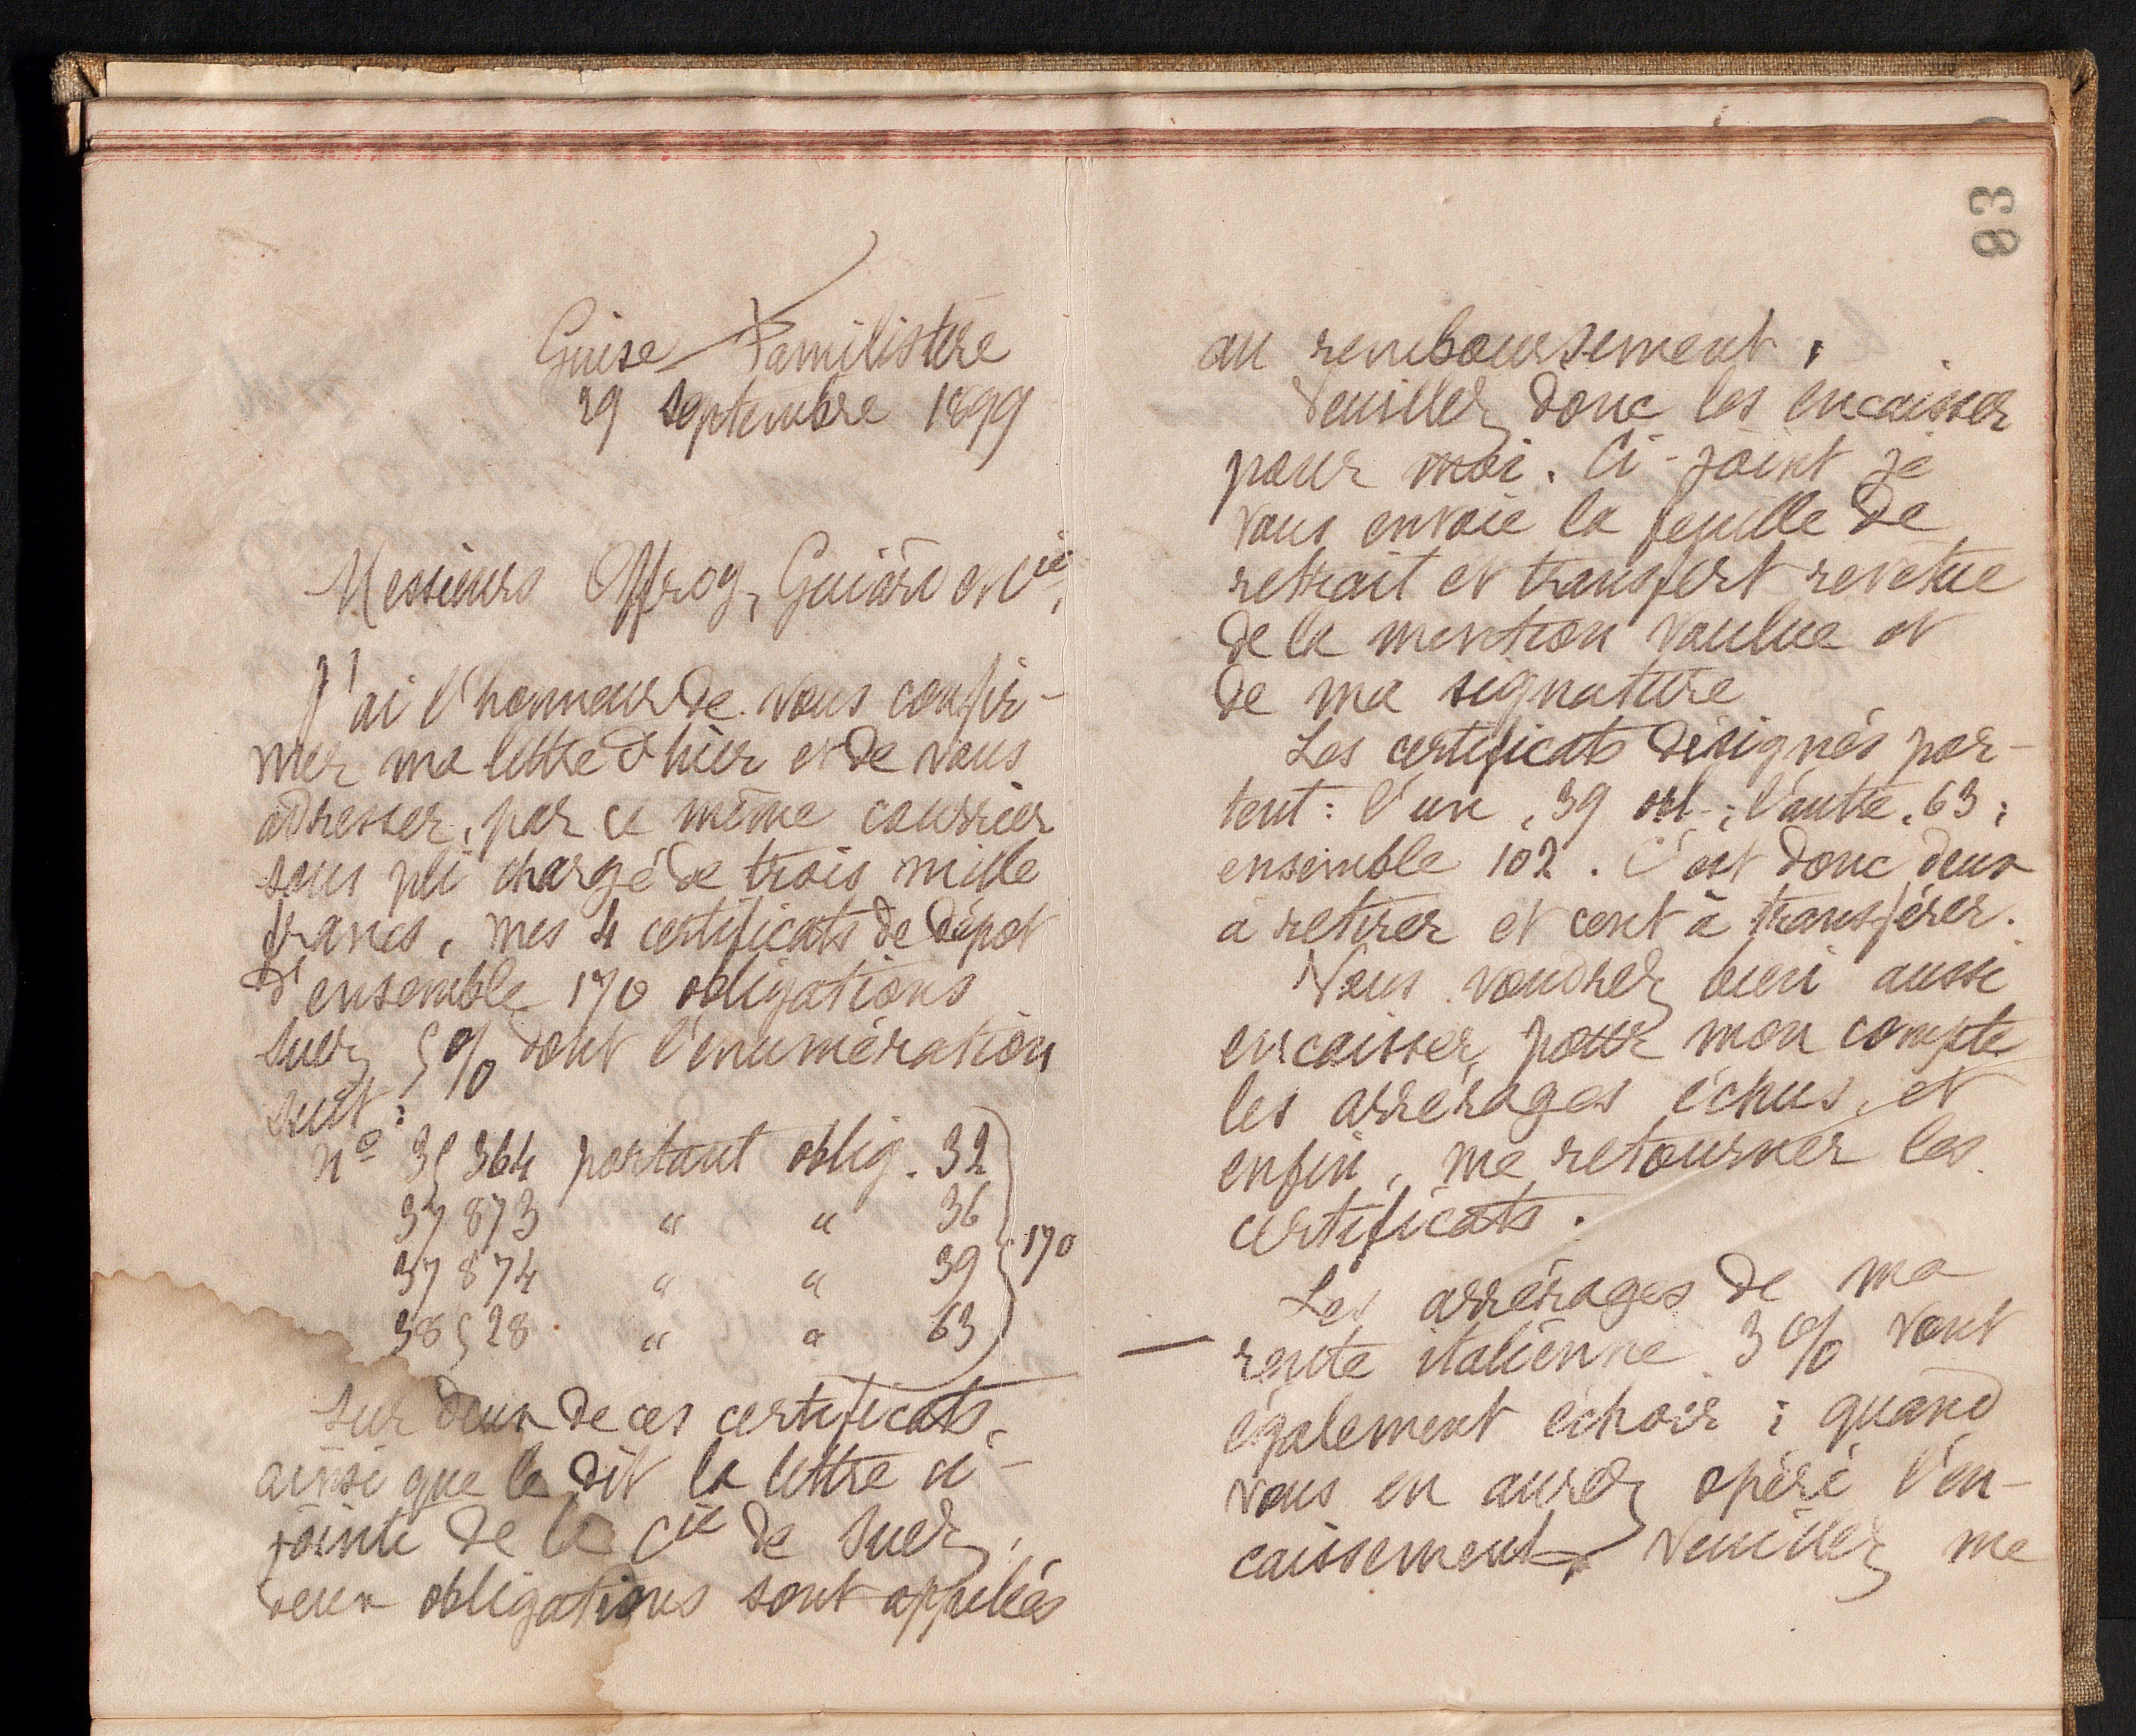 Guise Familistère
29 septembre 1899
Messieurs Offroy, Guiard et Cie,
J'ai l'honneur de vous confir-
mer ma lettre d'hier et de vous
adresser, par ce même courrier
sous pli chargé de trois mille
francs, mes 4 certificats de dépot
d'ensemble 170 obligations
Suez 5% dont l'énumération
suit :
no 35364 portant oblig. 32
37873 " " 36
37874 " " 39
38528 " " 63
170
Sur deux de ces certificats,
ainsi que le dit la lettre ci-
jointe de la Cie de Suez,
deux obligations sont appelées
83
au remboursement.
Veuillez donc les encaisser
pour moi. Ci-joint je
vous envoie la feuille de
retrait et transfert revetue
de la mention voulue et
de ma signature
Les certificats désignés por-
tent : l'un, 39 obl. ; l'autre, 63 ;
ensemble 102. C'est donc deux
à retirer et cent à transférer.
Vous voudrez bien aussi
encaisser pour mon compte
les arrérages échus, et
enfin, me retourner les
certificats.
Les arrérages de ma
rente italienne 3% vont
également échoir ; quand
vous en aurez opéré l'en-
caissement, veuillez me